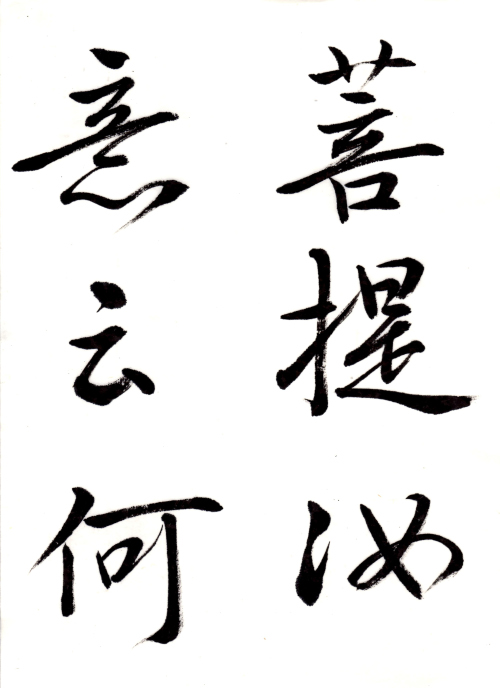 菩提汝
意云何